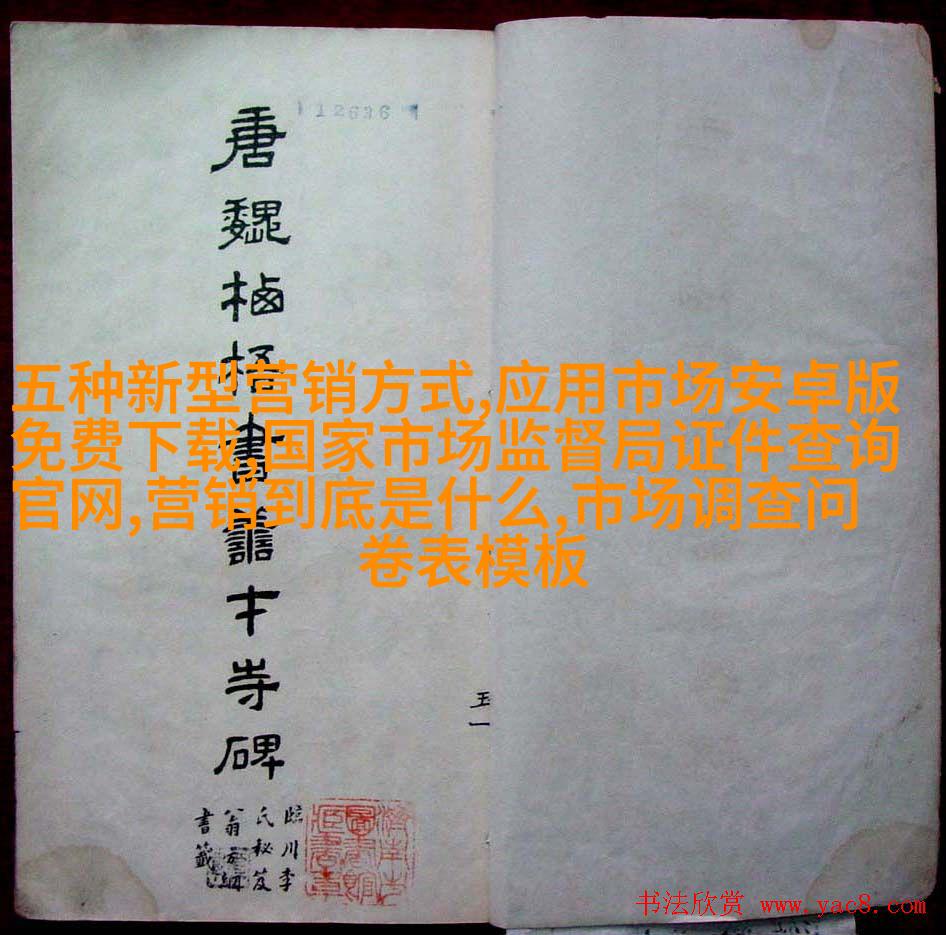 12636
唐魏栖梧書善才寺碑
臨川李
氏秘笈
翁方綱
書籤
濟南市
圖書館
藏書章
玉一
五种新型营销方式,应用市场安卓版
免费下载,国家市场监督局证件查询
官网,营销到底是什么,市场调查问
卷表模板
书法欣赏 www.yac8.com